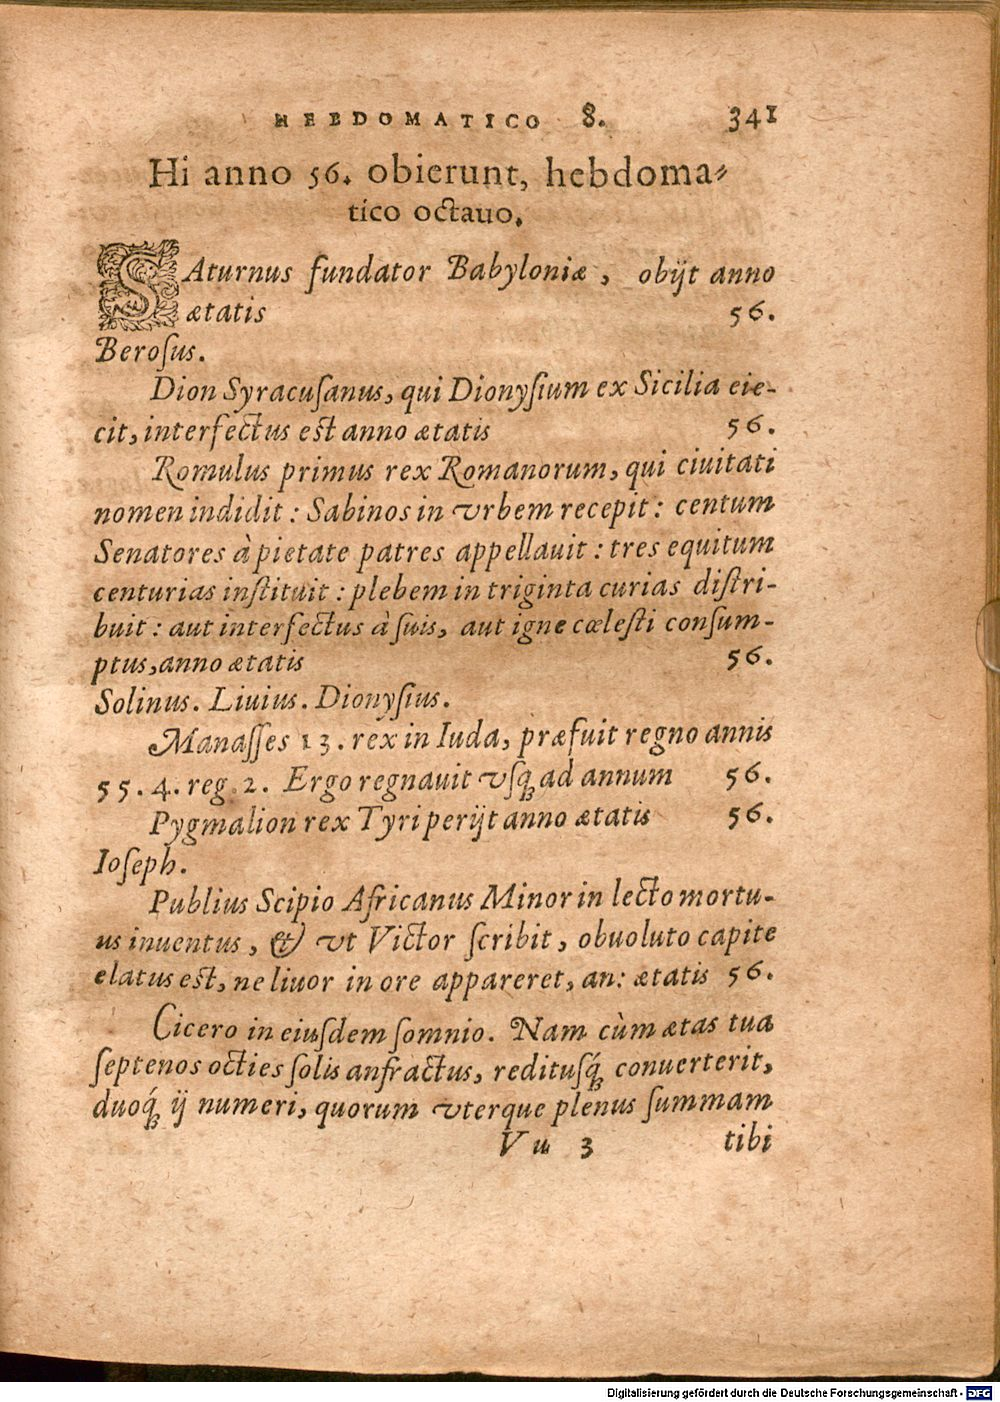 HEBDOMATICO 8. 341
Hi anno 56. obierunt, hebdoma-
tico octauo.
SAturnus fundator Babyloniæ, obijt anno
ætatis 56.
Beroſus.
Dion Syracuſanus, qui Dionyſium ex Sicilia eie-
cit, interfectus est anno ætatis 56.
Romulus primus rex Romanorum, qui ciuitati
nomen indidit: Sabinos in vrbem recepit: centum
Senatores à pietate patres appellauit: tres equitum
centurias inſtituit: plebem in triginta curias diſtri-
buit: aut interfectus à ſuis, aut igne cœleſti conſum-
ptus, anno ætatis 56.
Solinus. Liuius. Dionyſius.
Manaſſes 13. rex in Iuda, præfuit regno annis
55. 4. reg. 2. Ergo regnauit vſq́ ad annum 56.
Pygmalion rex Tyri perijt anno ætatis 56.
Ioſeph.
Publius Scipio Africanus Minor in lecto mortu-
us inuentus, & vt Victor ſcribit, obuoluto capite
elatus est, ne liuor in ore appareret, an: ætatis 56.
Cicero in eiuſdem ſomnio. Nam cùm ætas tua
ſeptenos octies ſolis anfractus, redituſq́ conuerterit,
duoq́ ij numeri, quorum vterque plenus ſummam
Vu 3 tibi
Digitalisierung gefördert durch die Deutsche Forschungsgemeinschaft - DFG